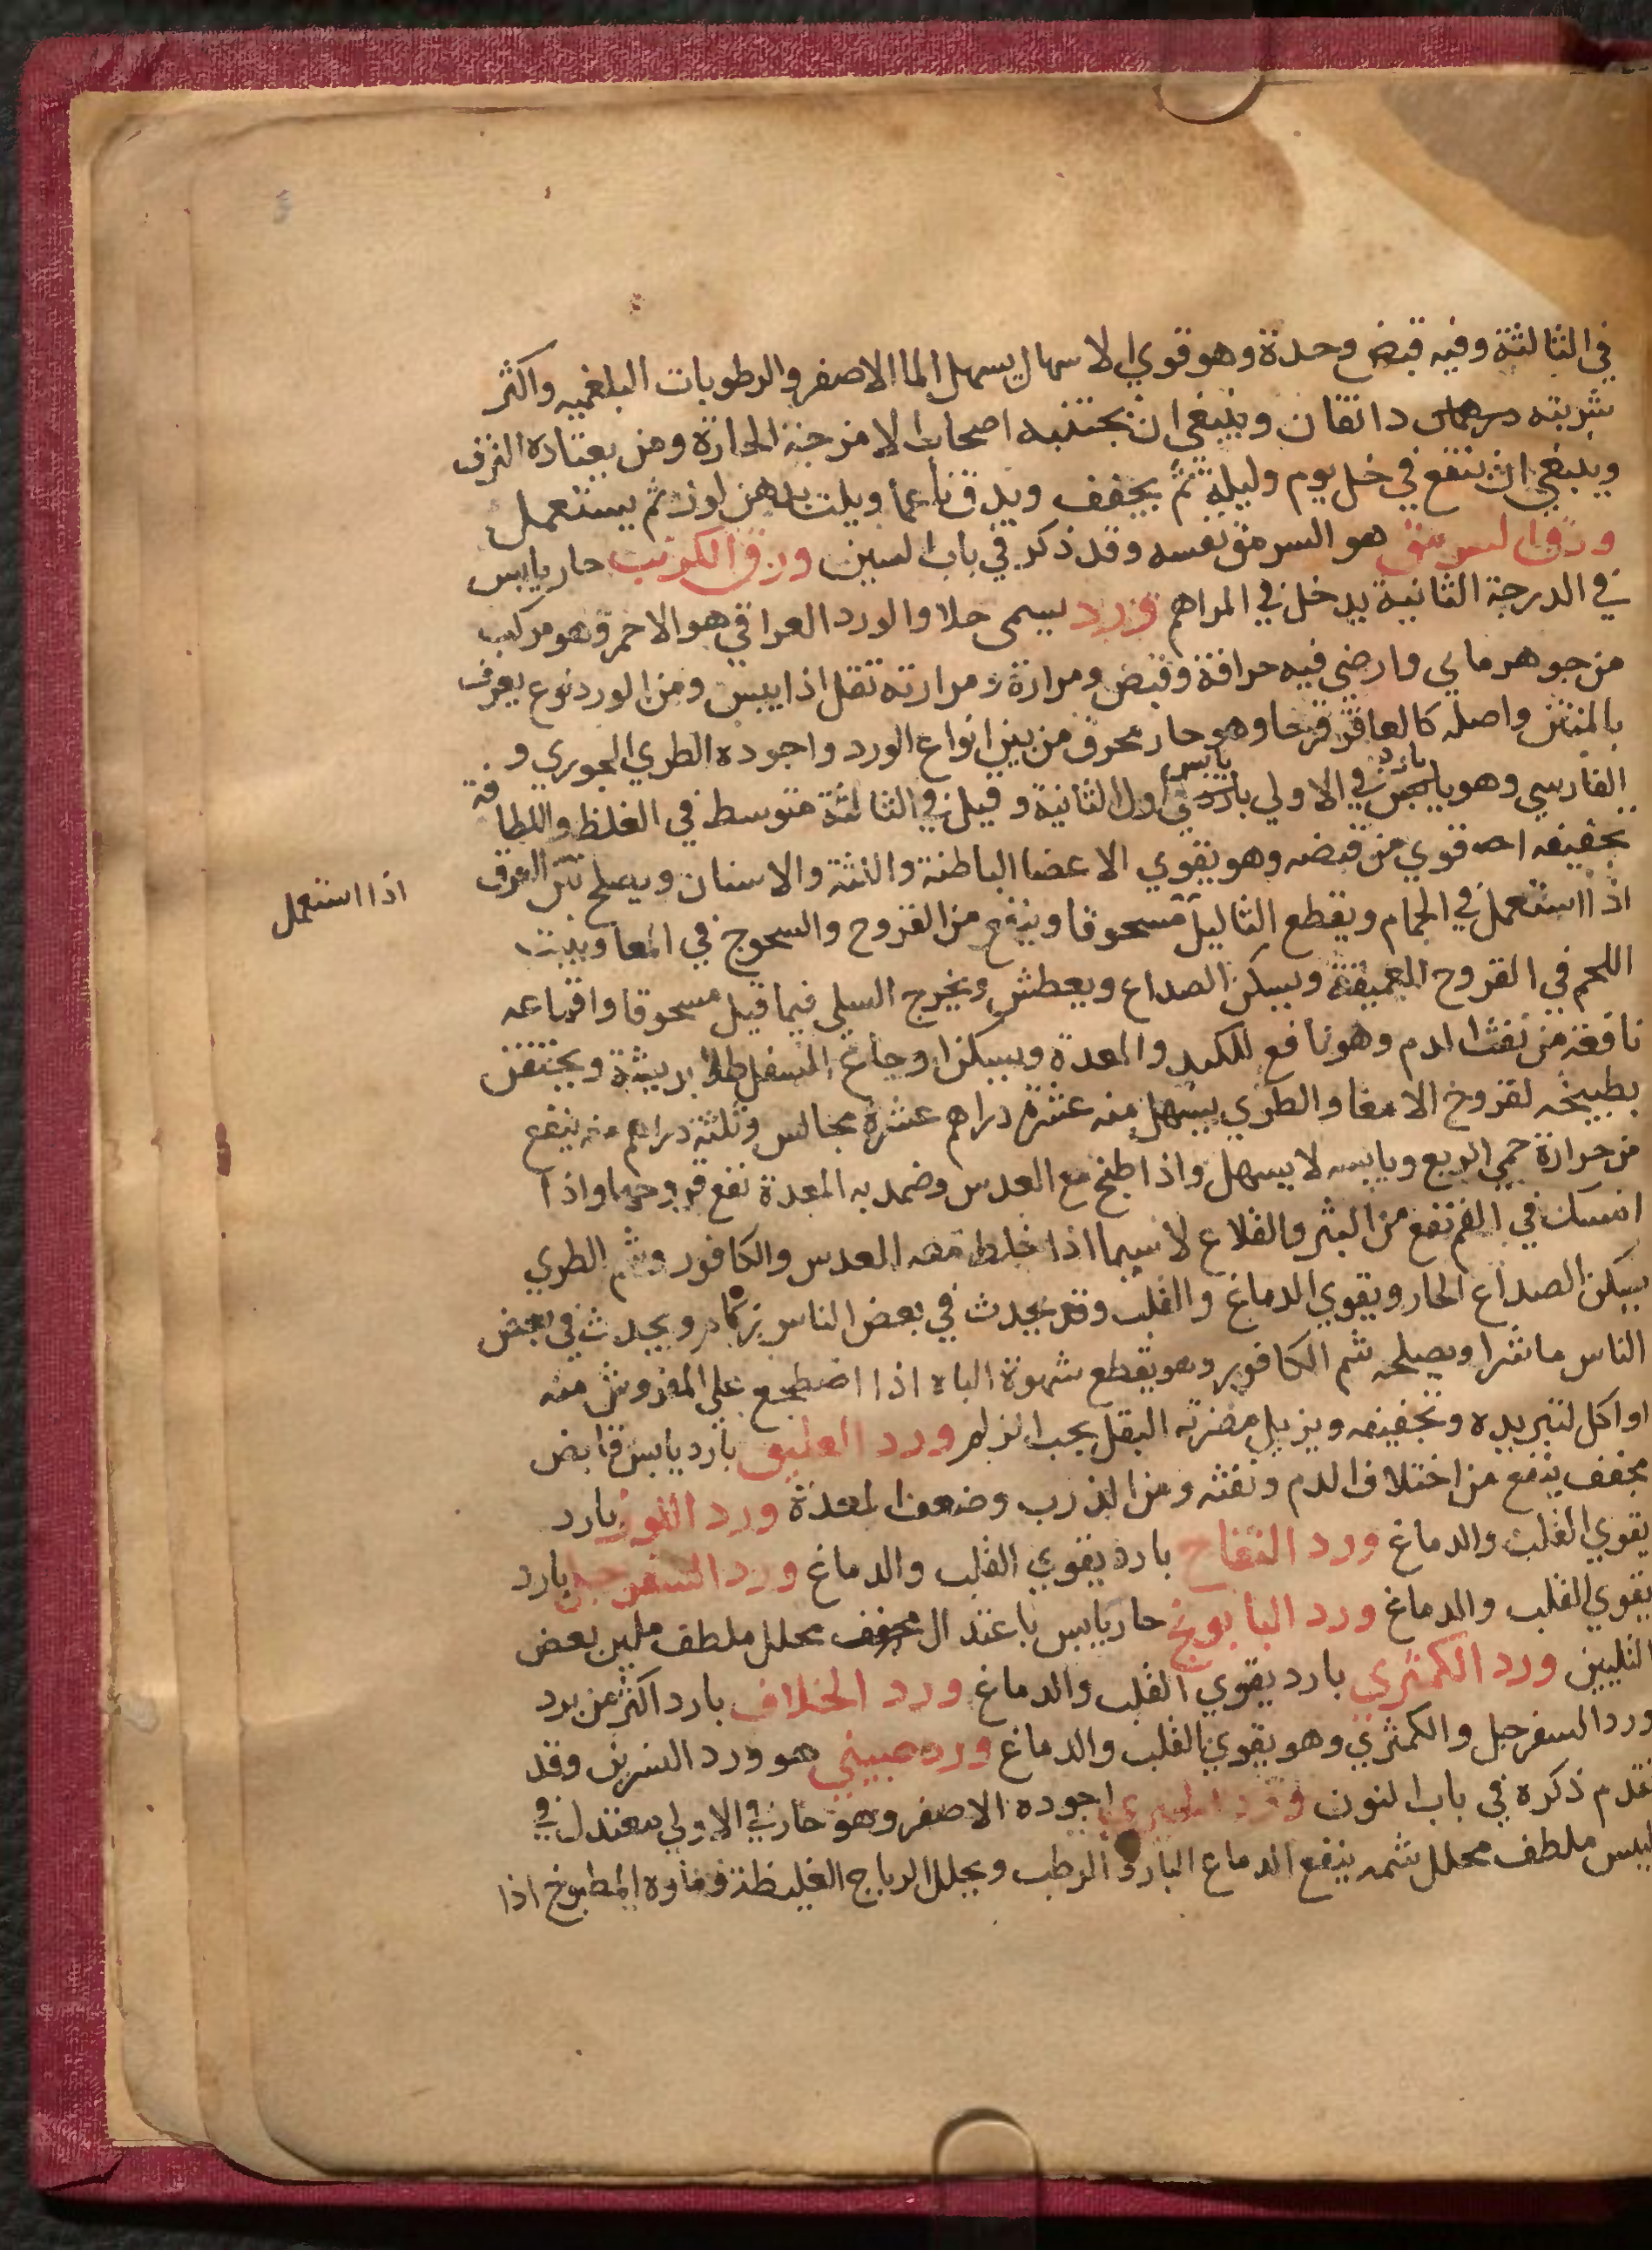 في الثالثة وفيه قبض وحدة وهو قوي الاسهال يسهل الما الاصفر والرطوبات البلغميه واكثر
شربته درهمان دانقان وينبغي ان يجتنبه اصحاب الامزجة الحارة ومن يعتاده النزف
وينبغي ان ينقع في خل يوم وليلة ثم يجفف ويدق ناعما ويلت بدهن لوز ثم يستعمل
ورق السرمق هو السرمق نفسه وقد ذكر في باب السين ورق الكرنب حار يابس
في الدرجة الثانية يدخل في المراهم ورد يسمى جلا والورد العراقي هو الاحمر وهو مركب
من جوهر مايي وارضي فيه حرافة وقبض ومرارة ومرارته تقل اذا يبس ومن الورد نوع يعرف
بالمنتن واصله كالعاقر قرحا وهو حار محرق من بين انواع الورد واجوده الطري الجوري و
الفارسي وهو يابس بارد في الاولي بارد يابس في اول الثانية وقيل في الثالثة متوسط في الغلظ واللطافة
تجفيفه قوي من قبضه وهو يقوي الاعضا الباطنة واللثة والاسنان ويصلح نتن العرق
اذا استعمل في الحمام ويقطع الثاليل مسحوقا وينفع من القروح والسحوج في المعا وينبت
اذا استعمل
اللحم في القروح العميقة ويسكن الصداع ويعطش ويخرج السلي فيما قيل مسحوقا واقماعه
نافعة من نفث الدم وهو نافع للكبد والمعدة ويسكن اوجاع السفل طلا بريشة ويحتقن
بطبيخه لقروح الامعا والطري يسهل منه عشرة دراهم عشرة مجالس وثلثة دراهم منه ينفع
من حرارة حمي الربع ويابسه لا يسهل واذا طبخ مع العدس وضمد به المعدة نفع قروحها واذا
امسك في الفم نفع من البثر والقلاع لا سيما اذا خلط معه العدس والكافور وشم الطري
يسكن الصداع الحار ويقوي الدماغ والقلب وقد يحدث في بعض الناس زكام ويحدث في بعض
الناس ماشرا ويصلحه شم الكافور وهو يقطع شهوة الباه اذا اضطجع علي المفروش منه
او اكل لتبريده وتجفيفه ويزيل مضرته البقل بحب الزلم ورد العليق بارد يابس قابض
مجفف ينفع من اختلاف الدم ونفثه ومن الذرب وضعف المعدة ورد اللوز بارد
يقوي القلب والدماغ ورد التفاح بارد يقوي القلب والدماغ ورد السفرجل بارد
يقوي القلب والدماغ ورد البابونج حار يابس باعتدال مجفف محلل ملطف ملين بعض
التليين ورد الكمثري بارد يقوي القلب والدماغ ورد الخلاف بارد اكثر من برد
ورد السفرجل والكمثري وهو يقوي القلب والدماغ ورد صيني هو ورد النسرين وقد
تقدم ذكره في باب النون ورد اجوده الاصفر وهو حار في الاولي معتدل في
اليبس ملطف محلل شمه ينفع الدماغ البارد الرطب ويحلل الرياح الغليظة وماوه المطبوخ اذا